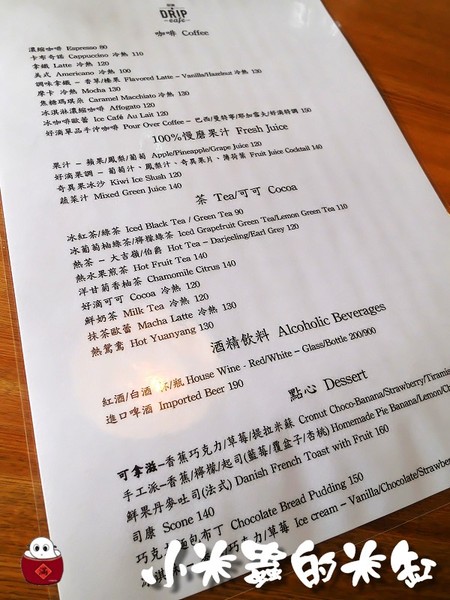 好滴
DRIP
cafe
咖啡 Coffee
濃縮咖啡 Espresso 80
卡布奇諾 Cappuccino 冷熱 110
拿鐵 Latte 冷熱 120
美式 Americano 冷熱 100
調味拿鐵 - 香草/榛果 Flavored Latte - Vanilla/Hazelnut 冷熱 130
摩卡 冷熱 Mocha 130
焦糖瑪琪朵 Caramel Macchiato 冷熱 130
冰淇淋濃縮咖啡 Affogato 120
冰咖啡歐蕾 Ice Café Au Lait 120
好滴單品手沖咖啡 Pour Over Coffee - 巴西/曼特寧/耶加雪夫/好滴特調 150
100%慢磨果汁 Fresh Juice
果汁 - 蘋果/鳳梨/葡萄 Apple/Pineapple/Grape Juice 120
好滴果調 - 葡萄汁、鳳梨汁、奇異果片、薄荷葉 Fruit Juice Cocktail 140
奇異果冰沙 Kiwi Ice Slush 120
蔬菜汁 Mixed Green Juice 140
茶 Tea/可可 Cocoa
冰紅茶/綠茶 Iced Black Tea / Green Tea 90
冰葡萄柚綠茶/檸檬綠茶 Iced Grapefruit Green Tea/Lemon Green Tea 110
熱茶 - 大吉嶺/伯爵 Hot Tea - Darjeeling/Earl Grey 120
熱水果煎茶 Hot Fruit Tea 140
洋甘菊香柚茶 Chamomile Citrus 140
好滴可可 Cocoa 冷熱 120
鮮奶茶 Milk Tea 冷熱 120
抹茶歐蕾 Macha Latte 冷熱 130
熱鴛鴦 Hot Yuanyang 130
酒精飲料 Alcoholic Beverages
紅酒/白酒 杯/瓶 House Wine - Red/White - Glass/Bottle 200/900
進口啤酒 Imported Beer 190
點心 Dessert
可拿滋-香蕉巧克力/草莓/提拉米蘇 Cronut Choco-Banana/Strawberry/Tiramis
手工派-香蕉/檸檬/起司(藍莓/覆盆子/杏桃) Homemade Pie Banana/Lemon/Ch
鮮果丹麥吐司(法式) Danish French Toast with Fruit 160
司康 Scone 140
巧克力麵包布丁 Chocolate Bread Pudding 150
巧克力/草莓 Ice cream - Vanilla/Chocolate/Strawbe
小米蟲的米缸